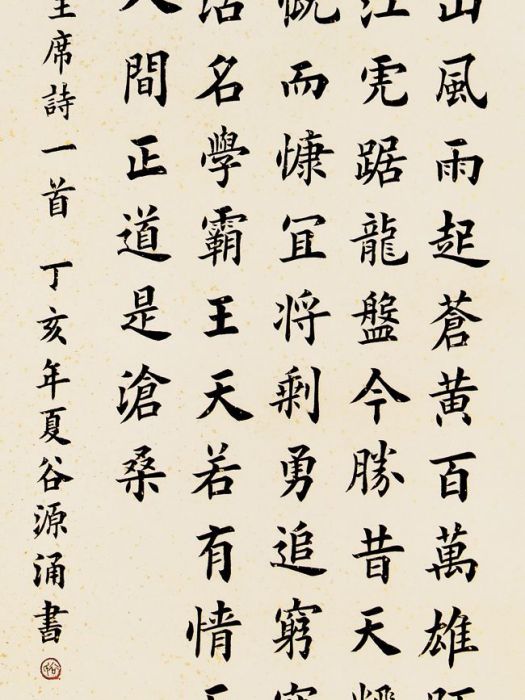 山風雨起蒼黃百萬雄
江虎踞龍盤今勝昔天
慨而慷冝将剩勇追窮
沽名學霸王天若有情天
人間正道是滄桑
主席詩一首 丁亥年夏谷源涌書